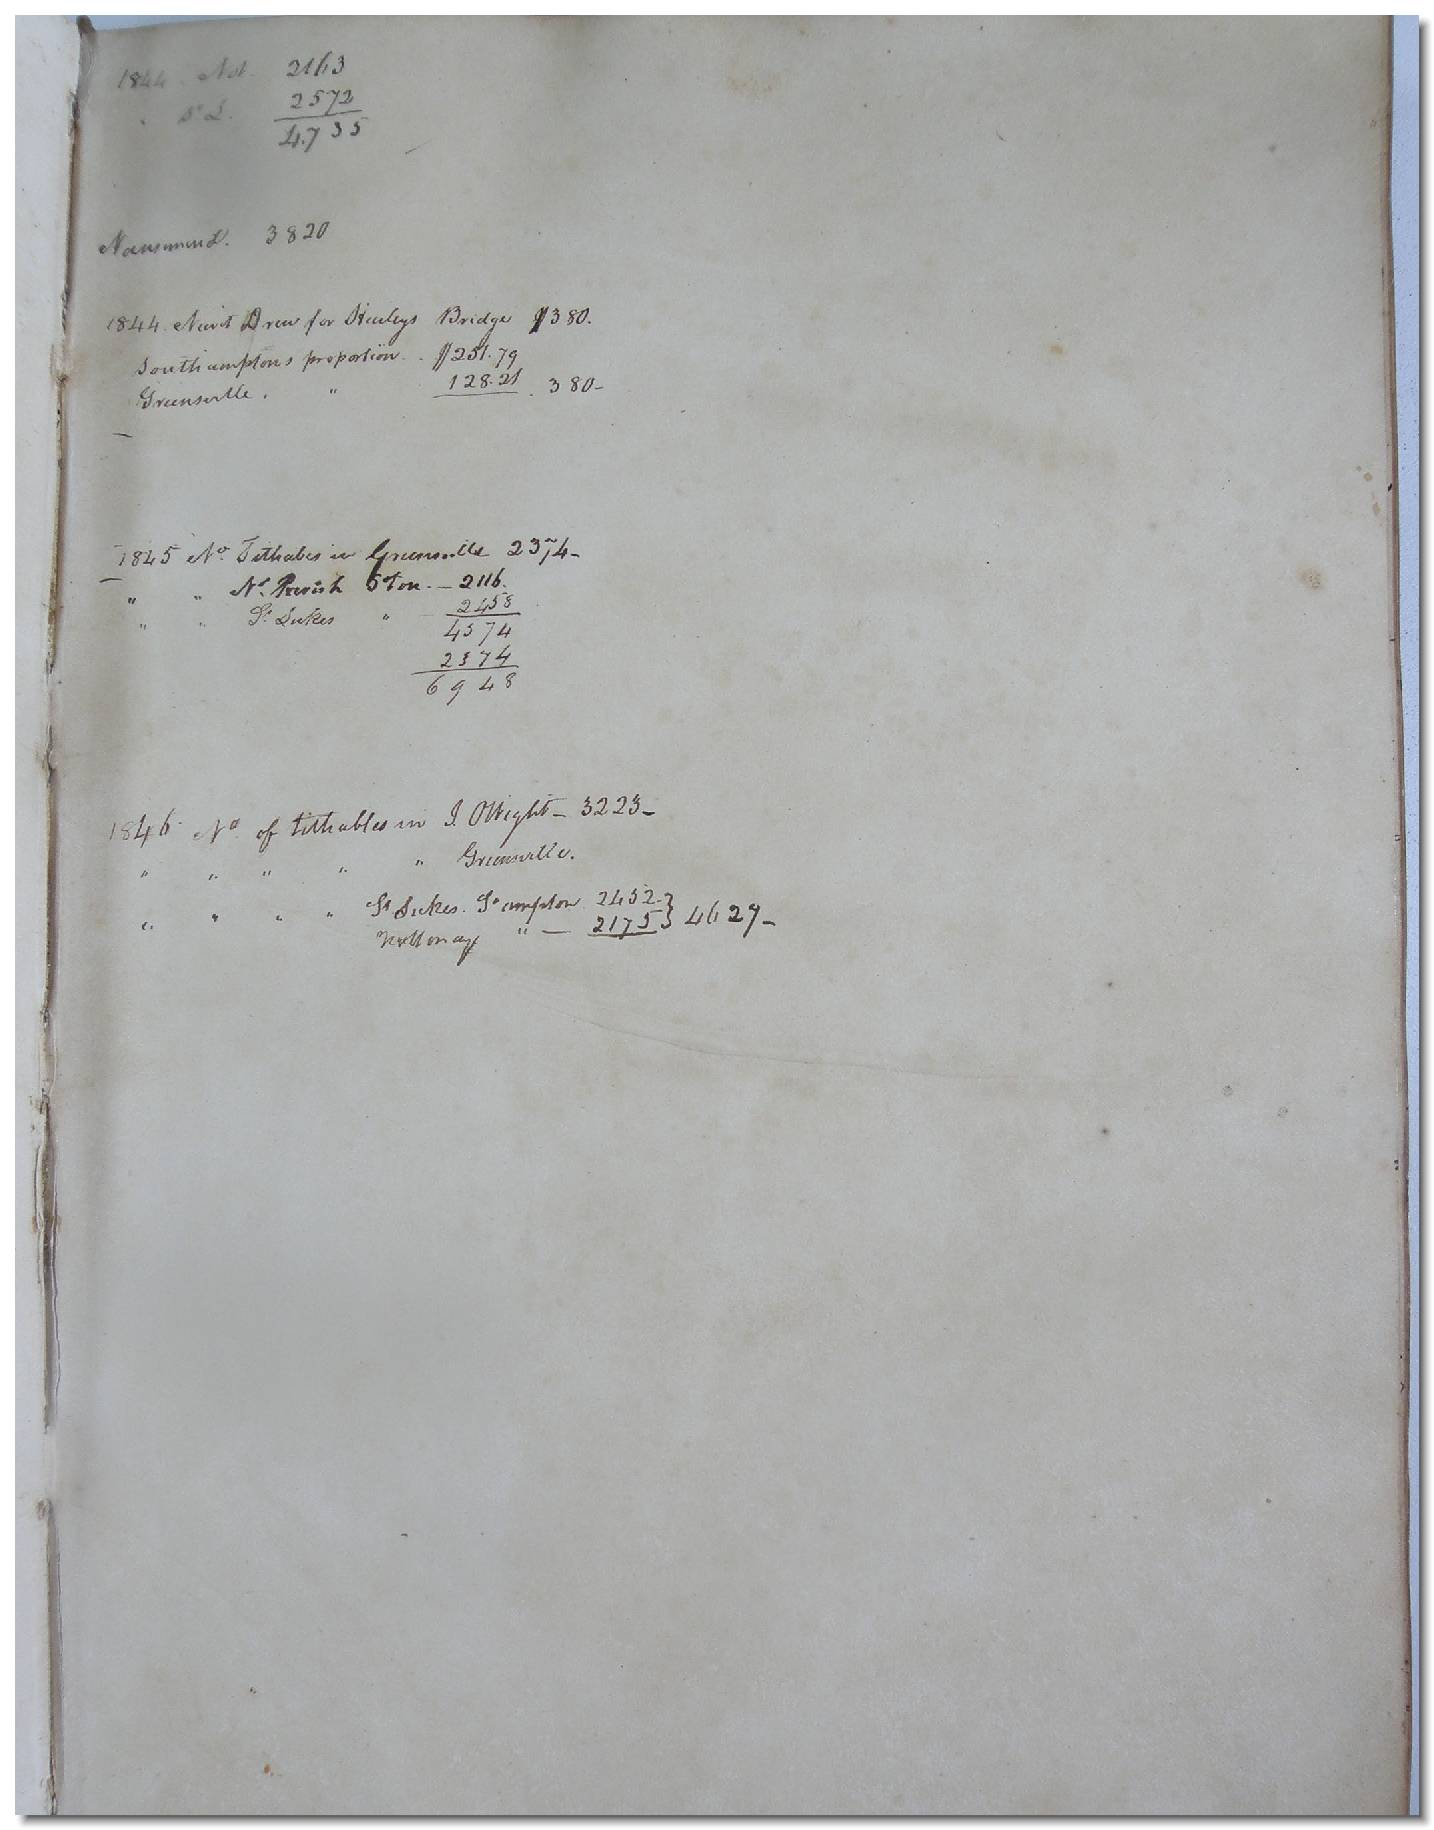 1844. Not. 2163
" St L. 2572
4735
Nansemond. 3820
1844. Newit Drew for Haleys Bridge $380.
Southamptons proportion . $251.79
Greensville . " 128.21 . 380-
1845 No. Tithables in Greensville 2374-
" " No. Parish Soton - 2116.
" " St. Lukes " 2458
4574
2374
6948
1846. No of tithables in I. OWight - 3223-
" " " " " Greensville.
" " " " St Lukes. So ampton 2452 } 4627-
Nottoway " — 2175